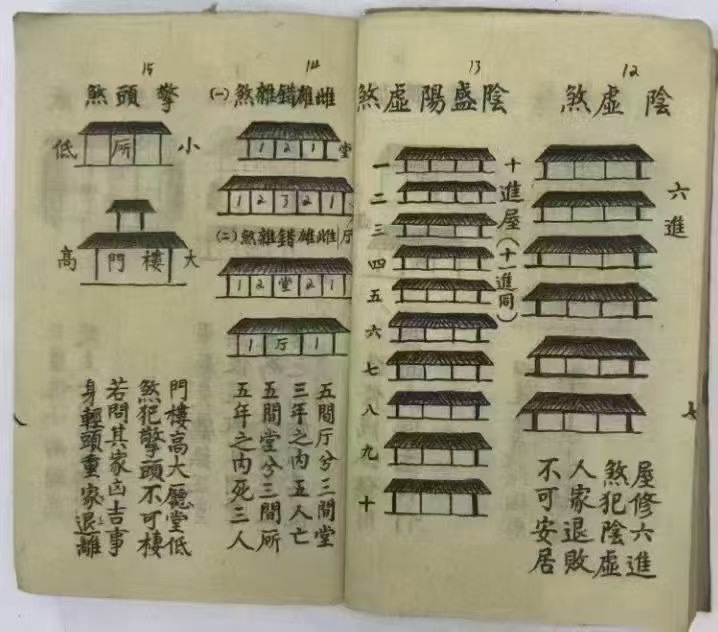 12
陰虛煞
六進
屋修六進
煞犯陰虛
人家退敗
不可安居
七
13
陰盛陽虛煞
十進屋(十一進同)
一
二
三
四
五
六
七
八
九
十
14
雌雄錯雜煞(一)
1 2 1 堂
1 2 3 2 1
厅
雌雄錯雜煞(二)
1 2 堂 2 1
1 厅 1
五間厅兮三間堂
三年之内五人亡
五間堂兮三間所
五年之内死三人
15
擎頭煞
小所低
大樓門高
門樓高大廳堂低
煞犯擎頭不可棲
若問其家凶吉事
身輕頭重家退離
八